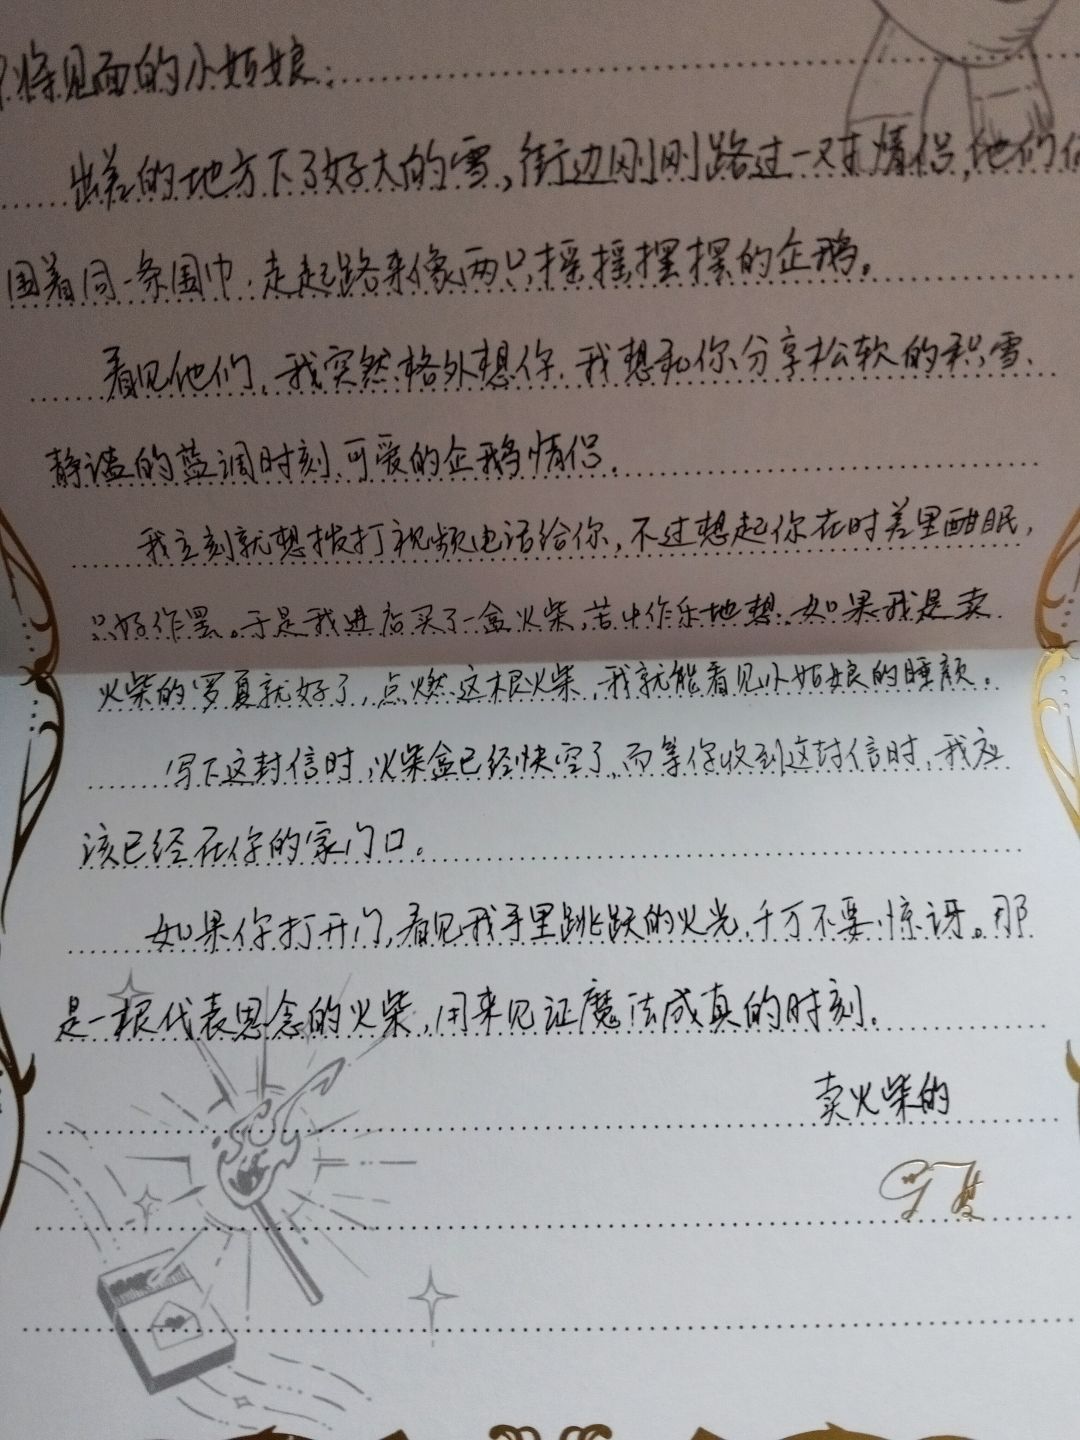 将见面的小姑娘：
出差的地方下了好大的雪，街边刚刚路过一对情侣，他们
围着同一条围巾，走起路来像两只摇摇摆摆的企鹅。
看见他们，我突然格外想你，我想和你分享松软的积雪、
静谧的蓝调时刻、可爱的企鹅情侣。
我立刻就想拨打视频电话给你，不过想起你在时差里酣眠，
只好作罢。于是我进店买了一盒火柴，苦中作乐地想，如果我是卖
火柴的罗夏就好了，点燃这根火柴，我就能看见小姑娘的睡颜。
写下这封信时，火柴盒已经快空了，而等你收到这封信时，我应
该已经在你的家门口。
如果你打开门，看见我手里跳跃的火光，千万不要惊讶。那
是一根代表思念的火柴，用来见证魔法成真的时刻。
卖火柴的
罗夏